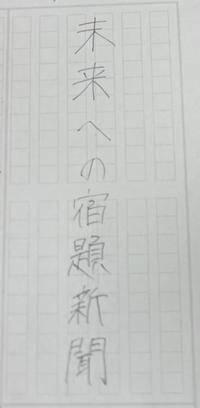 未来への宿題新聞